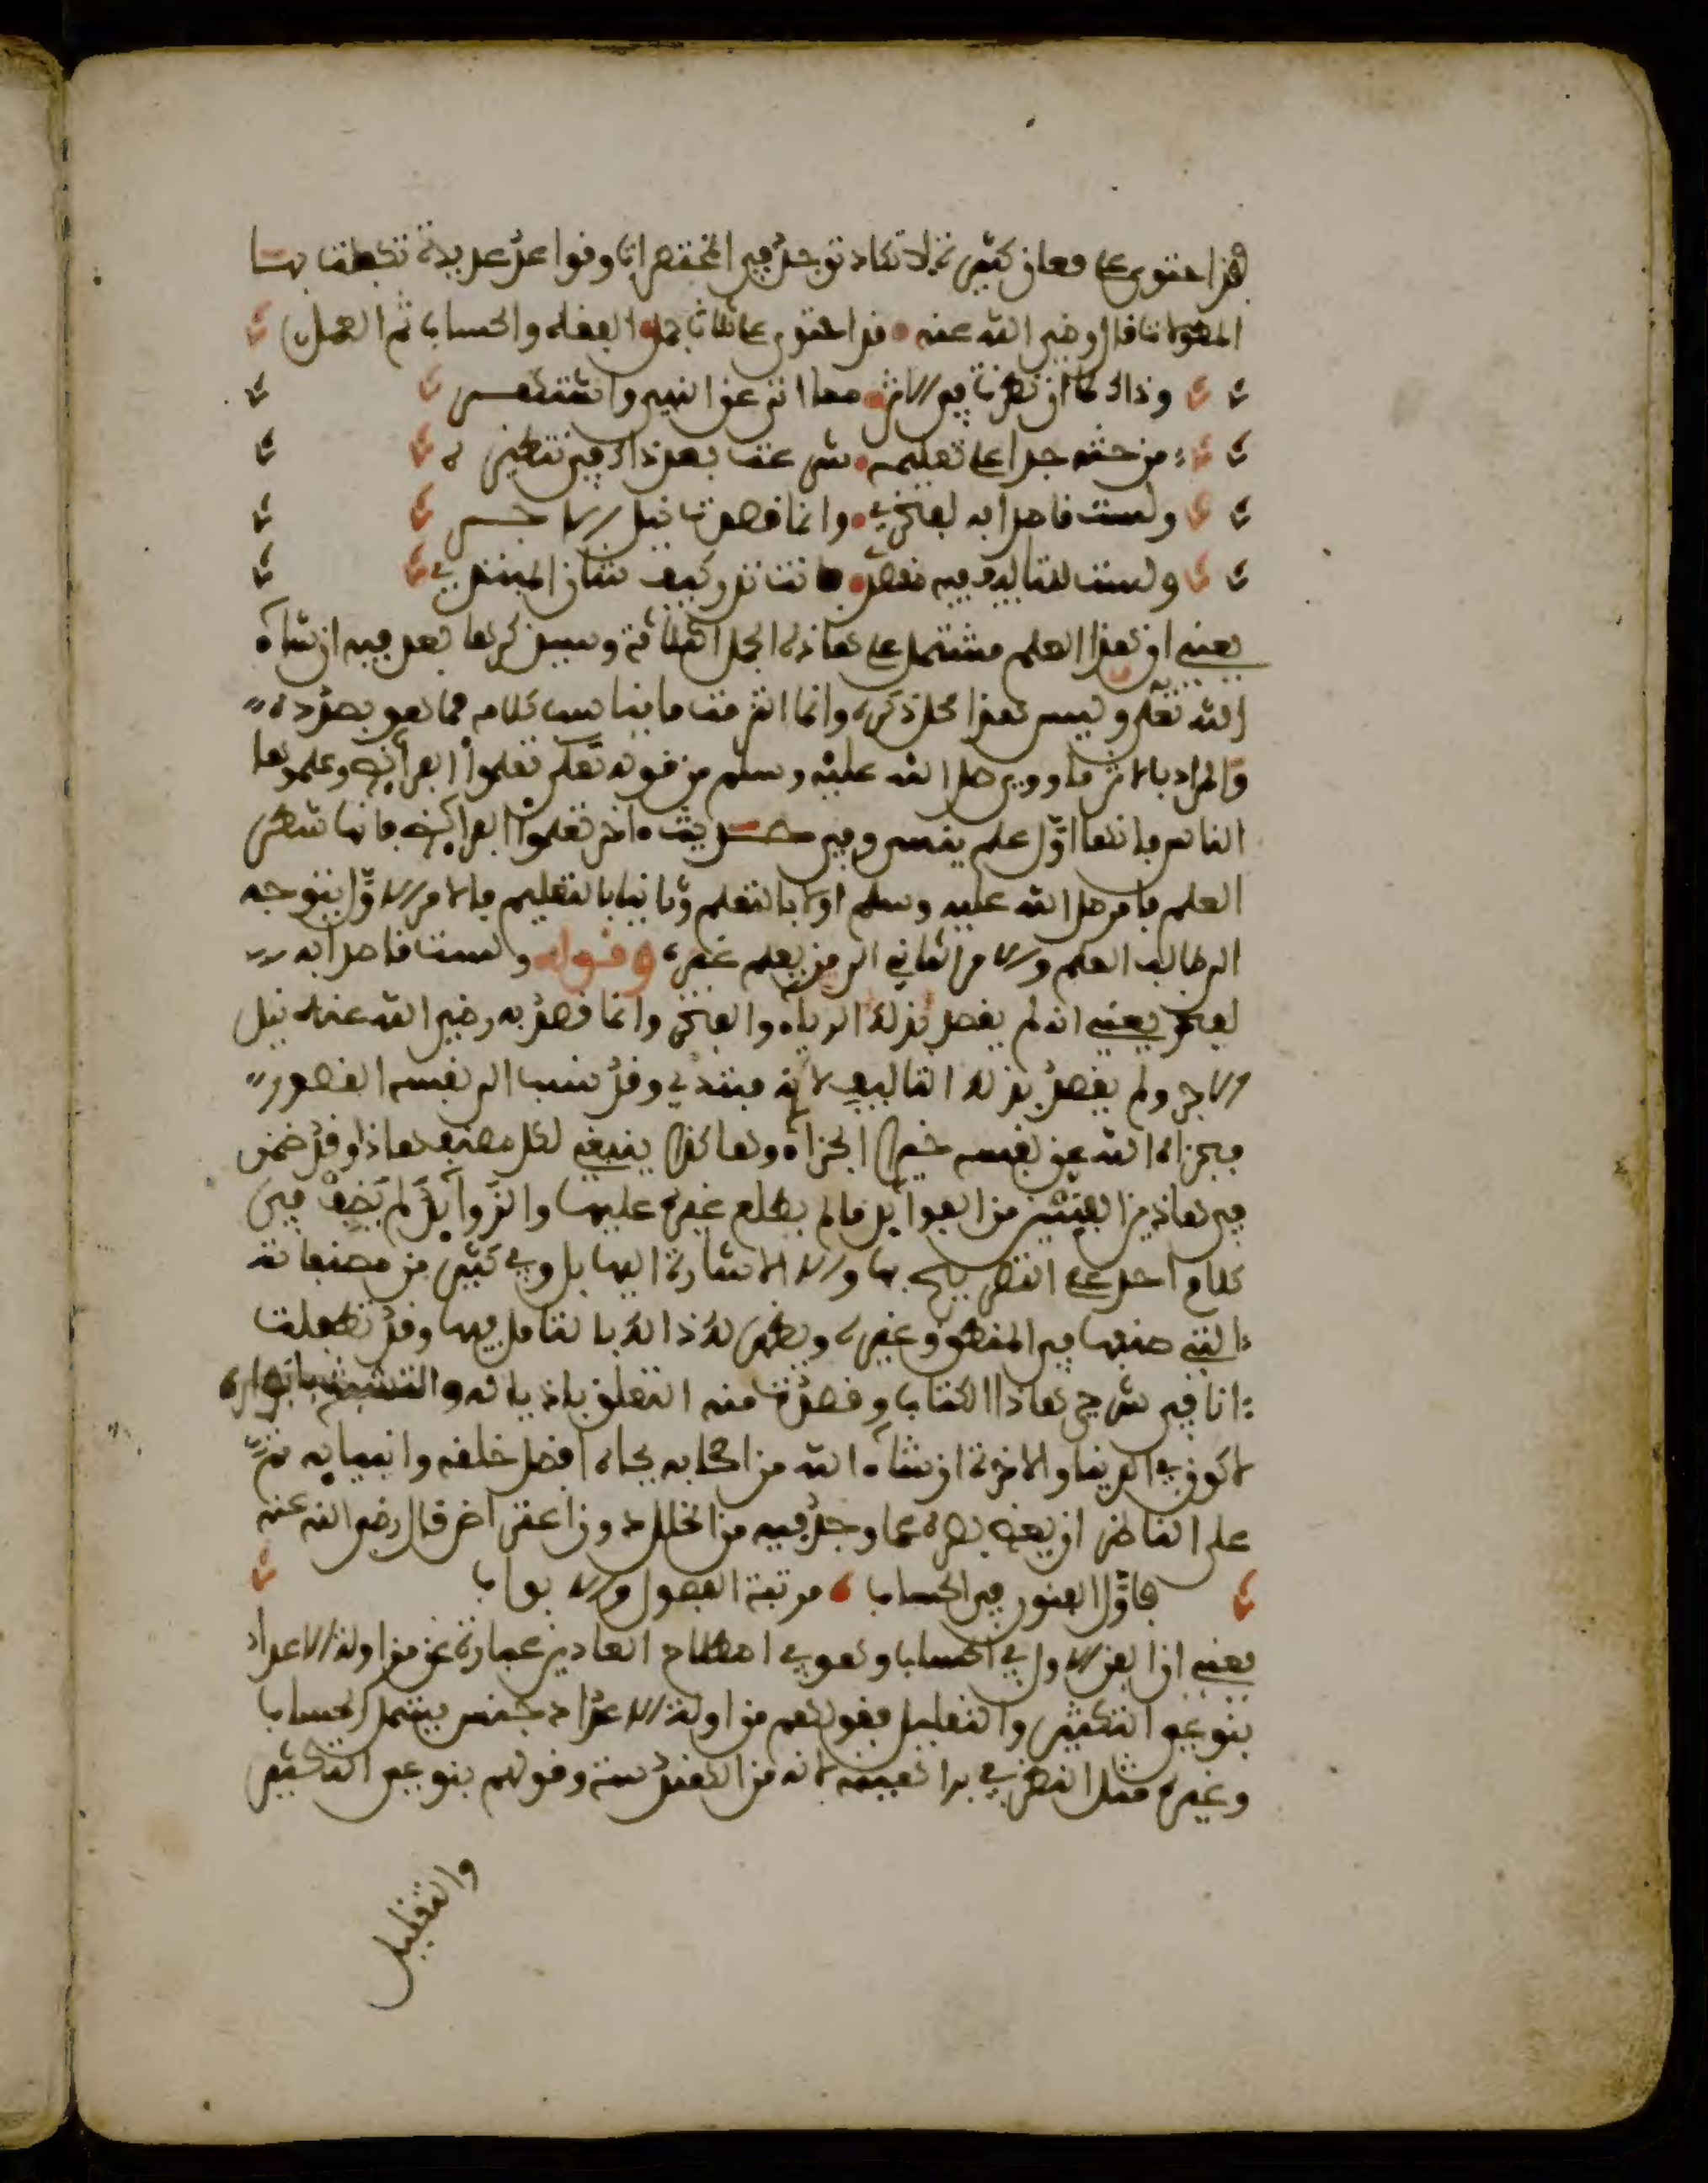 قد احتوى على معان كثيرة لا تكاد توجد في المختصرات وقواعد عديدة تكفلت بها
المطولات قال رضي الله عنه قد احتوى على ثلاث جمل الفقه والحساب ثم العمل
وذاك لما ان نظرت في الاثر مما اتى عن النبي واشتهر
من حثه جدا على تعليمه شرعت بعد ذاك في
ولست قاصدا به لفخر وانما قصدت نيل الاجر
ولست للتاليف فيه نقصد كيف شان المبتدي
يعني ان هذا العلم مشتمل على هاذه الجمل الثلاثة وسيذكرها بعد فيه ان شاء
الله تعلى وليس هذا محل ذكره وانما اثرت ما يناسب كلامه مما هو بصدده
والمراد بالاثر ما روي صلى الله عليه وسلم من قوله تعلموا الفرائض وعلموها
الناس فانها اول علم ينسى وفي حديث ءاخر تعلموا الفرائض فانها شطر
العلم فامر صلى الله عليه وسلم اولا بالتعلم وثانيا بالتعليم فالامر الاول يتوجه
الى طالب العلم والامر الثاني الى من يعلم غيره وقوله ولست قاصدا به
لفخر يعني انه لم يقصد بذلك الرياء والفخر وانما قصد به رضي الله عنه نيل
الاجر ولم يقصد بذلك التاليف لانه مبتدي وقد نسب الى نفسه القصور
فجزاه الله عن نفسه خير الجزاء وهاكذا ينبغي لكل مصنف هاذا وقد ضمن
في هاذين من الفوائد ما لم يطلع غيره عليها والزوائد لم تخف في
كلام احد على التصريح بها ولا الاشارة اليها بل وفي كثير من مصنفاته
التي صنفها في المنطق وغيره ويظهر لك ذالك بالتامل فيها وقد تطفلت
انا في شرح هاذا الكتاب وقصدت منه التعلق باذياله والتشبث بانواره
لاكون في الدنيا والاخرة ان شاء الله من اصحابه بجاه افضل خلقه وانبيائه ثم
على الناظر ان يغض بصره عما وجد فيه من الخلل قال رضي الله عنه
فاول الفنون في الحساب مرتبة الفصول والابواب
يعني ان الفن الاول في الحساب وهو في اصطلاح العادين عبارة عن مزاولة الاعداد
بنوعي التكثير والتقليل فقولهم مزاولة الاعداد جنس يشمل الحساب
وغيره مثل النظر في لانه من الهندسة وقولهم بنوعي التكثير
والتقليل